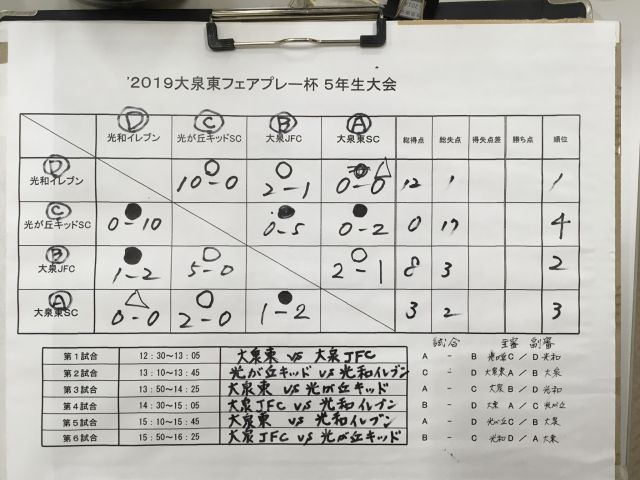 '2019大泉東フェアプレー杯 5年生大会
D C B A
光和イレブン 光が丘キッドSC 大泉JFC 大泉東SC 総得点 総失点 得失点差 勝ち点 順位
D 光和イレブン ○ 10-0 ○ 2-1 △ 0-0 12 1 1
C 光が丘キッドSC ● 0-10 ● 0-5 ● 0-2 0 17 4
B 大泉JFC ● 1-2 ○ 5-0 ○ 2-1 8 3 2
A 大泉東SC △ 0-0 ○ 2-0 ● 1-2 3 2 3
試合 主審 副審
第1試合 12:30~13:05 大泉東 vs 大泉JFC A - B 光が丘C / D 光和
第2試合 13:10~13:45 光が丘キッド vs 光和イレブン C - D 大泉東A / B 大泉
第3試合 13:50~14:25 大泉東 vs 光が丘キッド A - C 大泉B / D 光和
第4試合 14:30~15:05 大泉JFC vs 光和イレブン B - D 大東 A / C 光が丘
第5試合 15:10~15:45 大泉東 vs 光和イレブン A - D 光が丘C / B 大泉
第6試合 15:50~16:25 大泉JFC vs 光が丘キッド B - C 光和D / A 大東